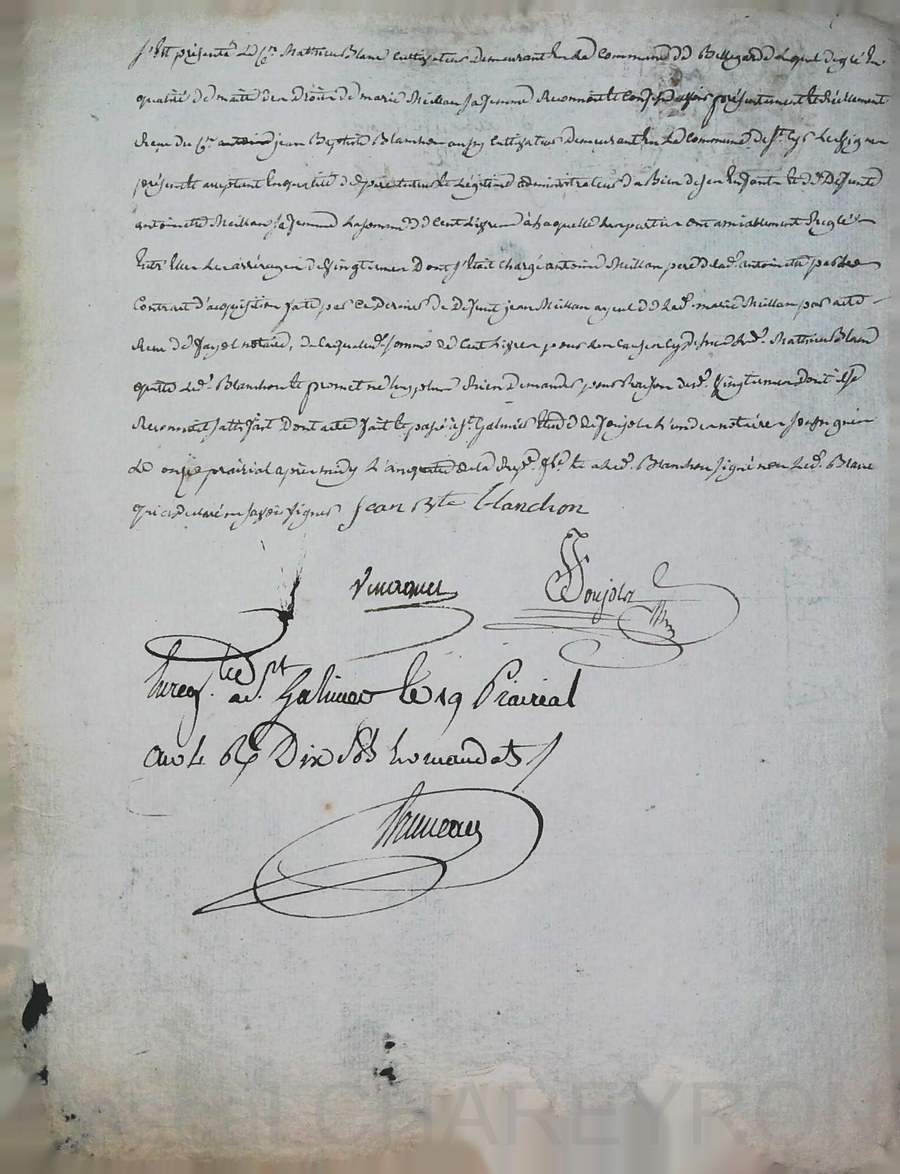 S'est présenté le Cen. Mathieu Blanc Cultivateur Demeurant En La Commune de Bellegarde Lequel De gré En
qualité de maitre des Droits de marie Meillan sa femme Reconnait et Confesse avoir présentement et Réellement
Reçu du Cen. jean Baptiste Blanchon aussy Cultivateur Demeurant En La Commune de St.
présent et acceptant En qualité de pere et Légitime administrateur du Bien de ses Enfants et de Deffunte
antoinette Meillan sa femme La somme de Cent Livres à Laquelle Les parties ont amiablement Reglé
Entr'Elles Les arrérages de vingtiemes Dont s'Etait Chargé antoine Meillan pere de Lad. antoinette par Le
Contrat d'acquisition faite par Ce Dernier de Deffunt jean Meillan ayeul de Lad. marie Meillan par acte
Reçu de fayol notaire, de Laquelle somme de Cent Livres Led. Mathieu Blanc
quitte Led. Blanchon et promet ne Luy plus Rien Demander pour Raison desd. vingtiemes Dont il se
Reconnait satisfait Dont acte fait et passé à St. Galmier Etude de Soujol L'un des notaires soussignés
Le onze prairial apres midy L'an quatre de la Rep. et a Led. Blanchon signé non Led. Blanc
qui a declaré ne savoir signer Jean Bte blanchon
Soujol
Enregtré. a St Galmier le 19 Prairial
an 4 Rç Dix sols En mandats